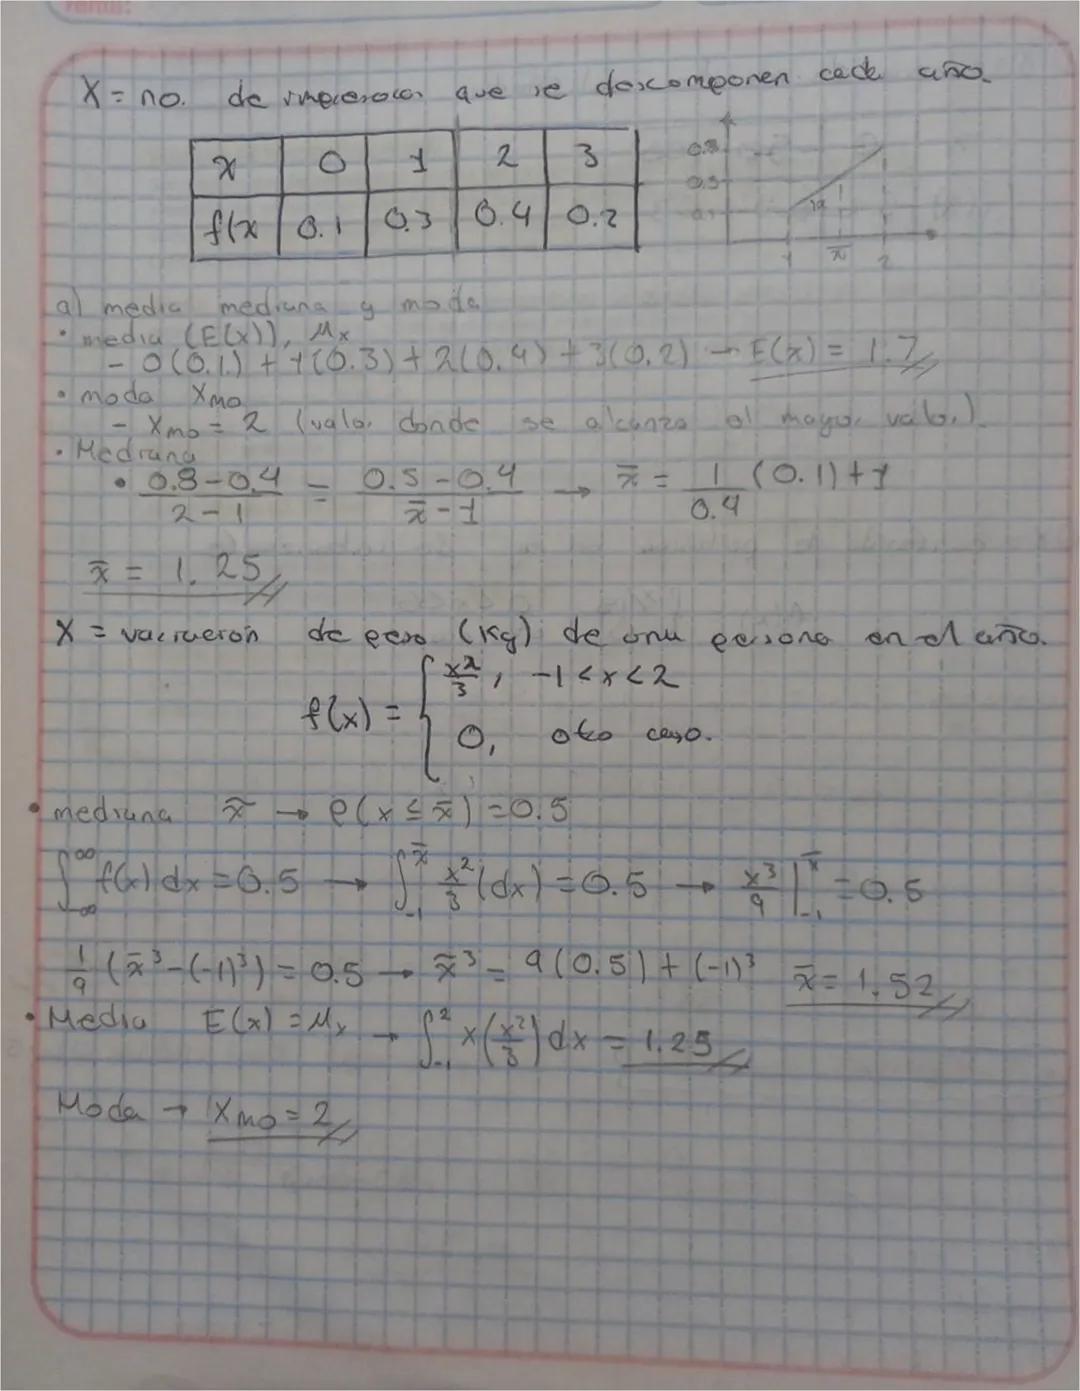 Tema:
X = no. de impresoras que se descomponen cada año.
x 0 1 2 3
f(x 0.1 0.3 0.4 0.2
0.8
0.5
0.4
1 x̄ 2
a) media mediana y moda
• media (E(x)), Mx
- 0(0.1) + 1(0.3) + 2(0.4) + 3(0.2) → E(x) = 1.7
• moda Xmo
- Xmo = 2 (valor donde se alcanza el mayor valor)
• Mediana
• 0.8-0.4/2-1 = 0.5-0.4/x̄-1 → x̄ = 1/0.4 (0.1)+1
x̄ = 1.25
X = variación de peso (Kg) de una persona en el año.
f(x) = { x²/3, -1<x<2
0, otro caso.
• mediana x̃ → P(x ≤ x̄) = 0.5
∫_-∞^∞ f(x) dx = 0.5 → ∫_-1^x̄ x²/3 (dx) = 0.5 → x³/9 |_-1^x̄ = 0.5
1/9 (x̄³-(-1)³) = 0.5 → x̄³ = 9(0.5) + (-1)³ x̄ = 1.52
• Media E(x) = Mx → ∫_-1^2 x(x²/3) dx = 1.25
Moda → Xmo = 2